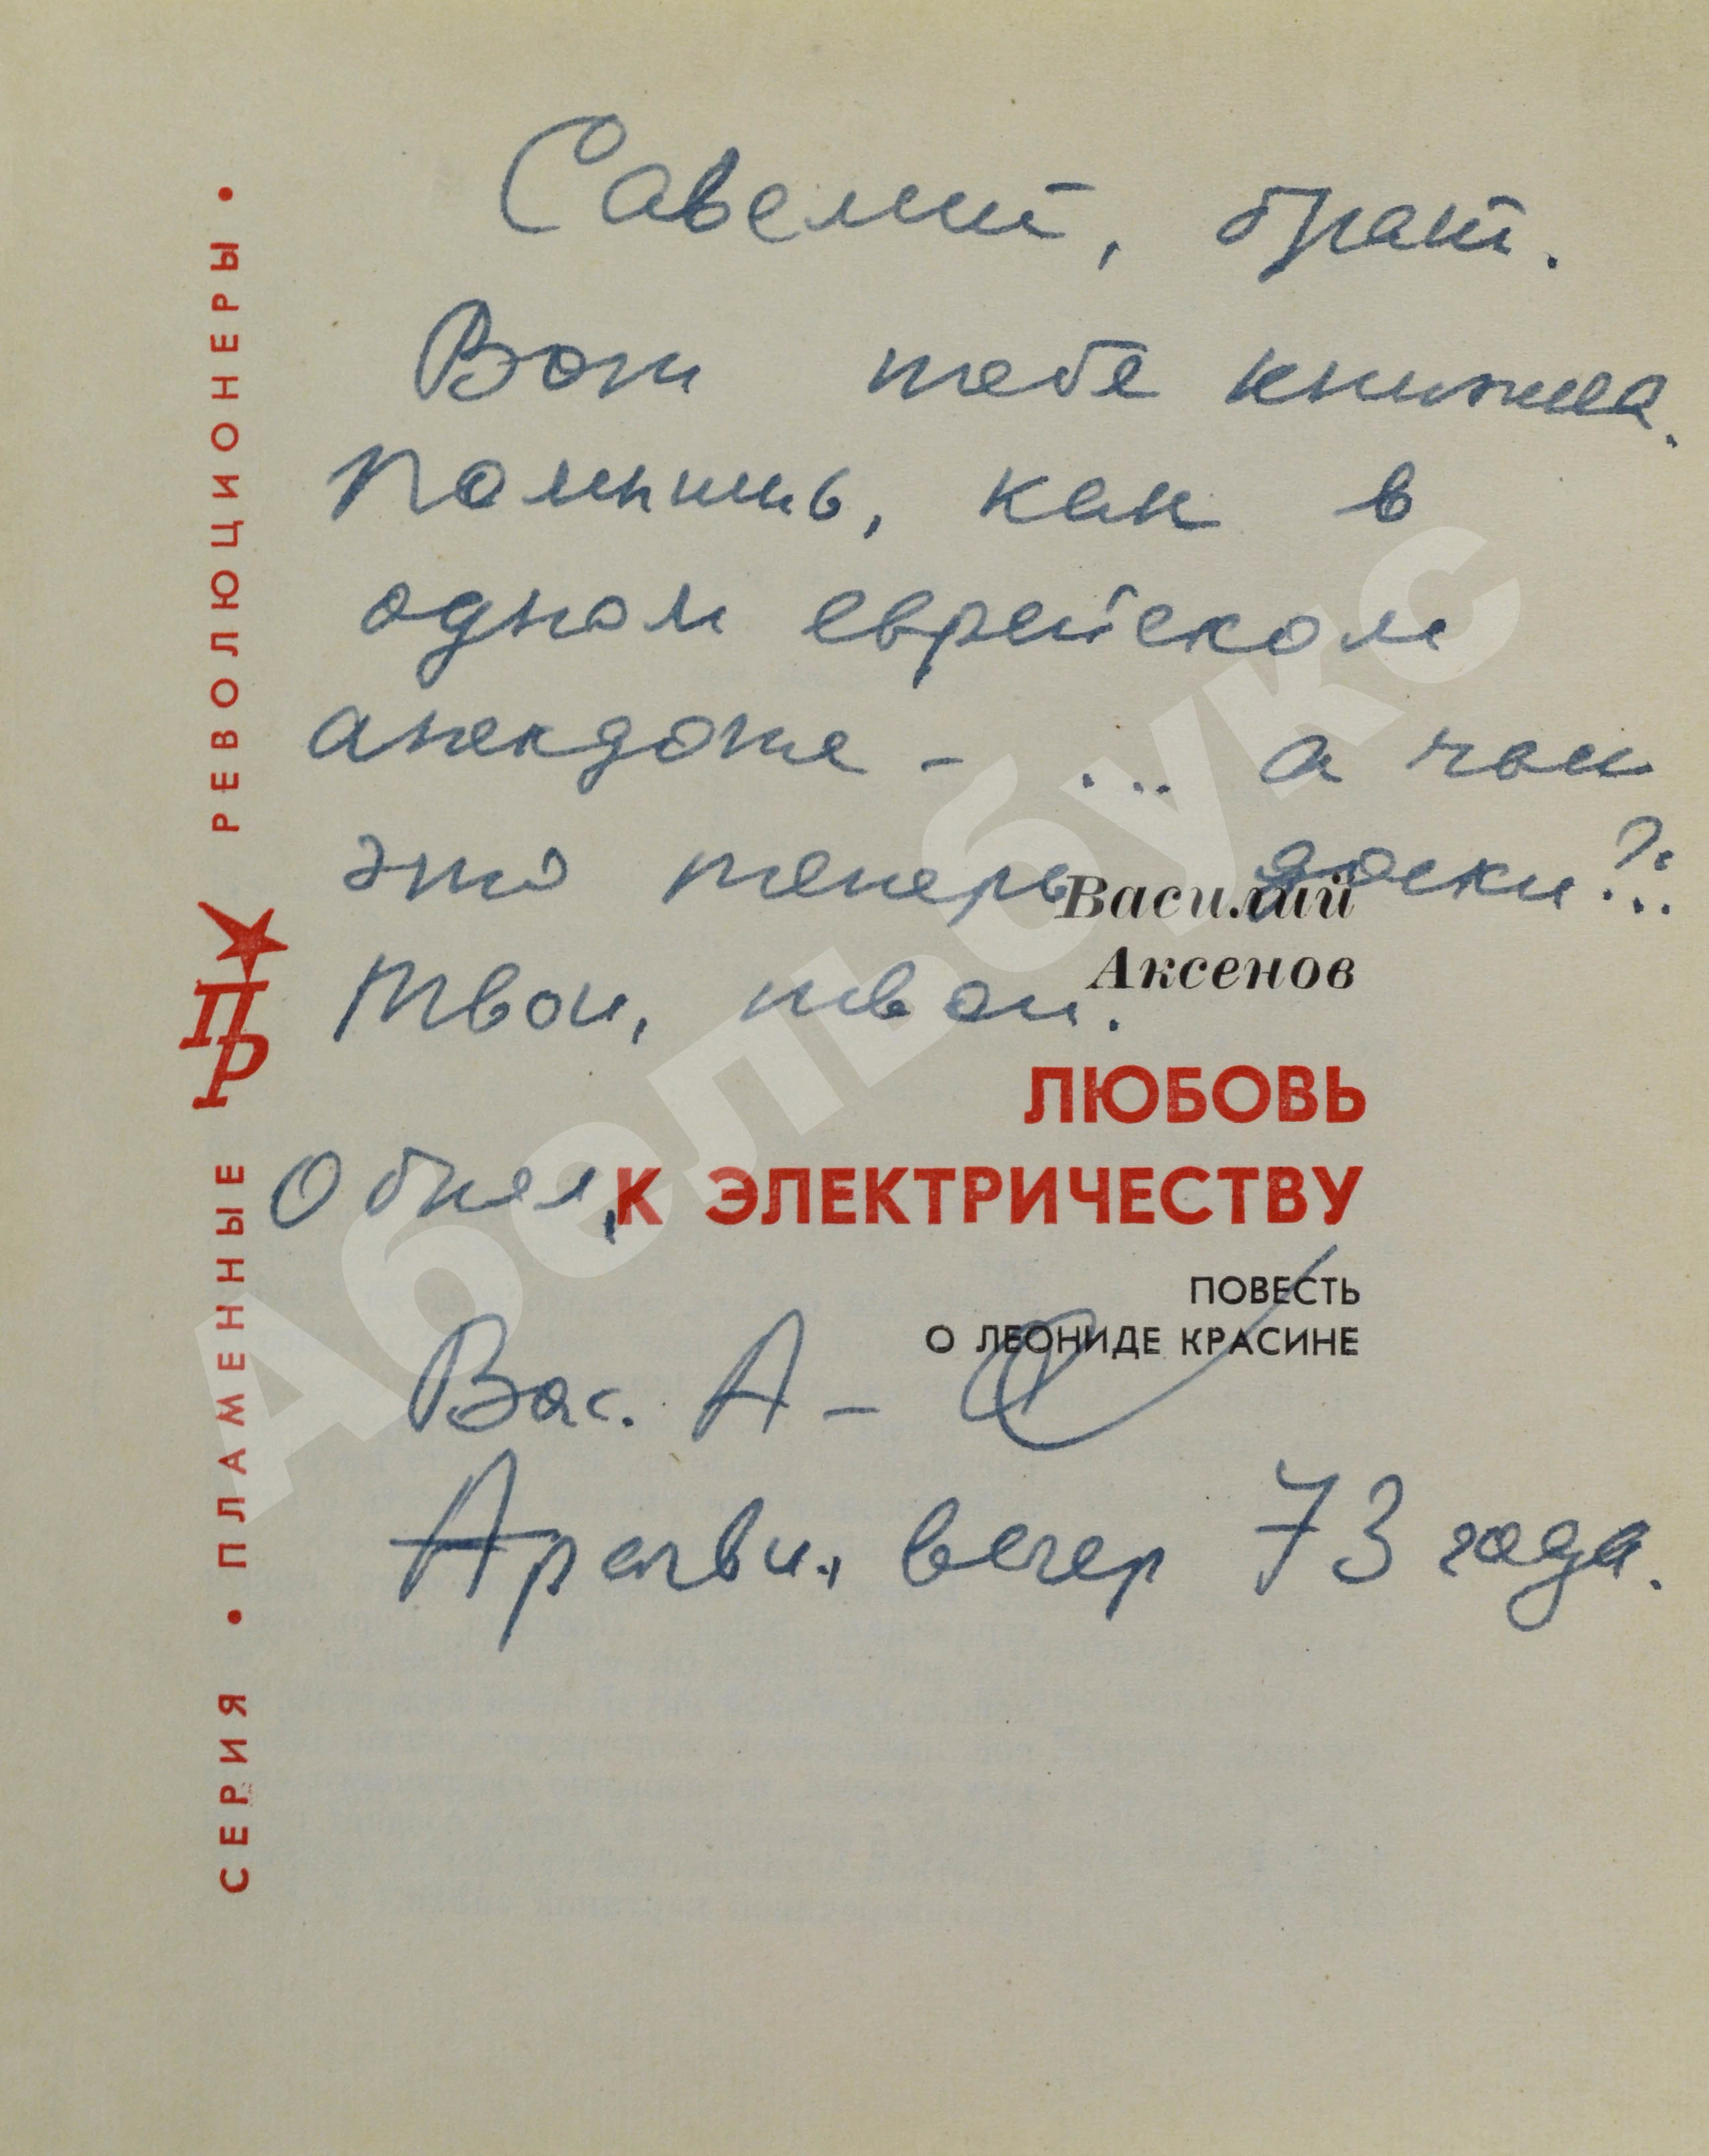 Савелий, брат.
Вот тебе книжка.
Помнишь, как в
одном еврейском
анекдоте - ... а чьи
это теперь доски?..
Твои, твои.
Обнял,
Вас. А-
Арагви, вечер 73 года.
Василий
Аксенов
ЛЮБОВЬ
К ЭЛЕКТРИЧЕСТВУ
ПОВЕСТЬ
О ЛЕОНИДЕ КРАСИНЕ
СЕРИЯ • ПЛАМЕННЫЕ РЕВОЛЮЦИОНЕРЫ •
ПР
Абельбукс